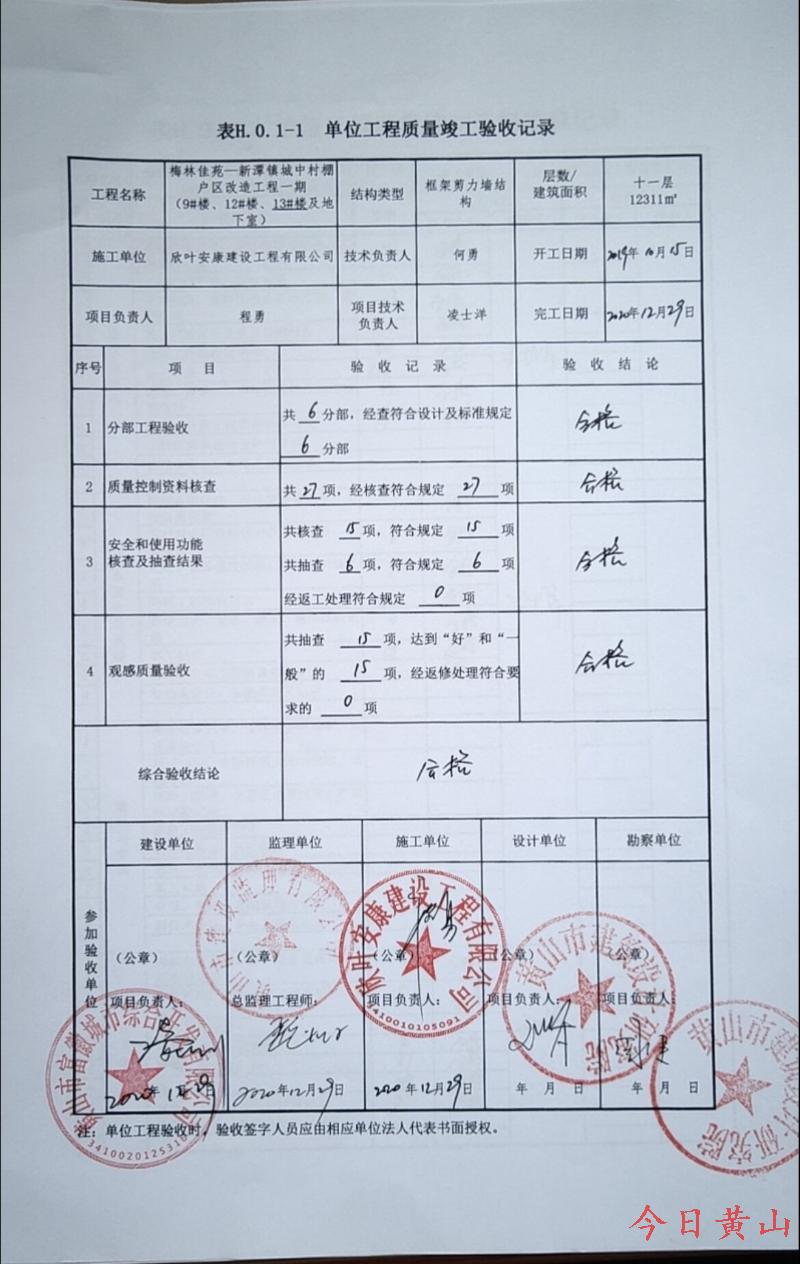 表H.0.1-1 单位工程质量竣工验收记录
工程名称
梅林佳苑—新潭镇城中村棚
户区改造工程一期
（9#楼、12#楼、13#楼及地
下室）
结构类型
框架剪力墙结
构
层数/
建筑面积
十一层
12311㎡
施工单位
欣叶安康建设工程有限公司
技术负责人
何勇
开工日期
2019年10月15日
项目负责人
程勇
项目技术
负责人
凌士洋
完工日期
2020年12月29日
序号
项 目
验 收 记 录
验 收 结 论
1
分部工程验收
共 6 分部，经查符合设计及标准规定
6 分部
合格
2
质量控制资料核查
共27项，经核查符合规定 27 项
合格
3
安全和使用功能
核查及抽查结果
共核查 15 项，符合规定 15 项
共抽查 6 项，符合规定 6 项
经返工处理符合规定 0 项
合格
4
观感质量验收
共抽查 15 项，达到“好”和“一
般”的 15 项，经返修处理符合要
求的 0 项
合格
综合验收结论
合格
参加验收单位
建设单位
监理单位
施工单位
设计单位
勘察单位
（公章）
（公章）
（公章）
（公章）
（公章）
项目负责人：
总监理工程师：
项目负责人：
项目负责人：
项目负责人：
2020年12月29日
2020年12月29日
2020年12月29日
年 月 日
年 月 日
黄山市富徽城市综合开发有限公司
3410020125318
欣叶安康建设工程有限公司
410010105091
黄山市建筑设计研究院
黄山市建筑设计研究院
注：单位工程验收时，验收签字人员应由相应单位法人代表书面授权。
今日黄山